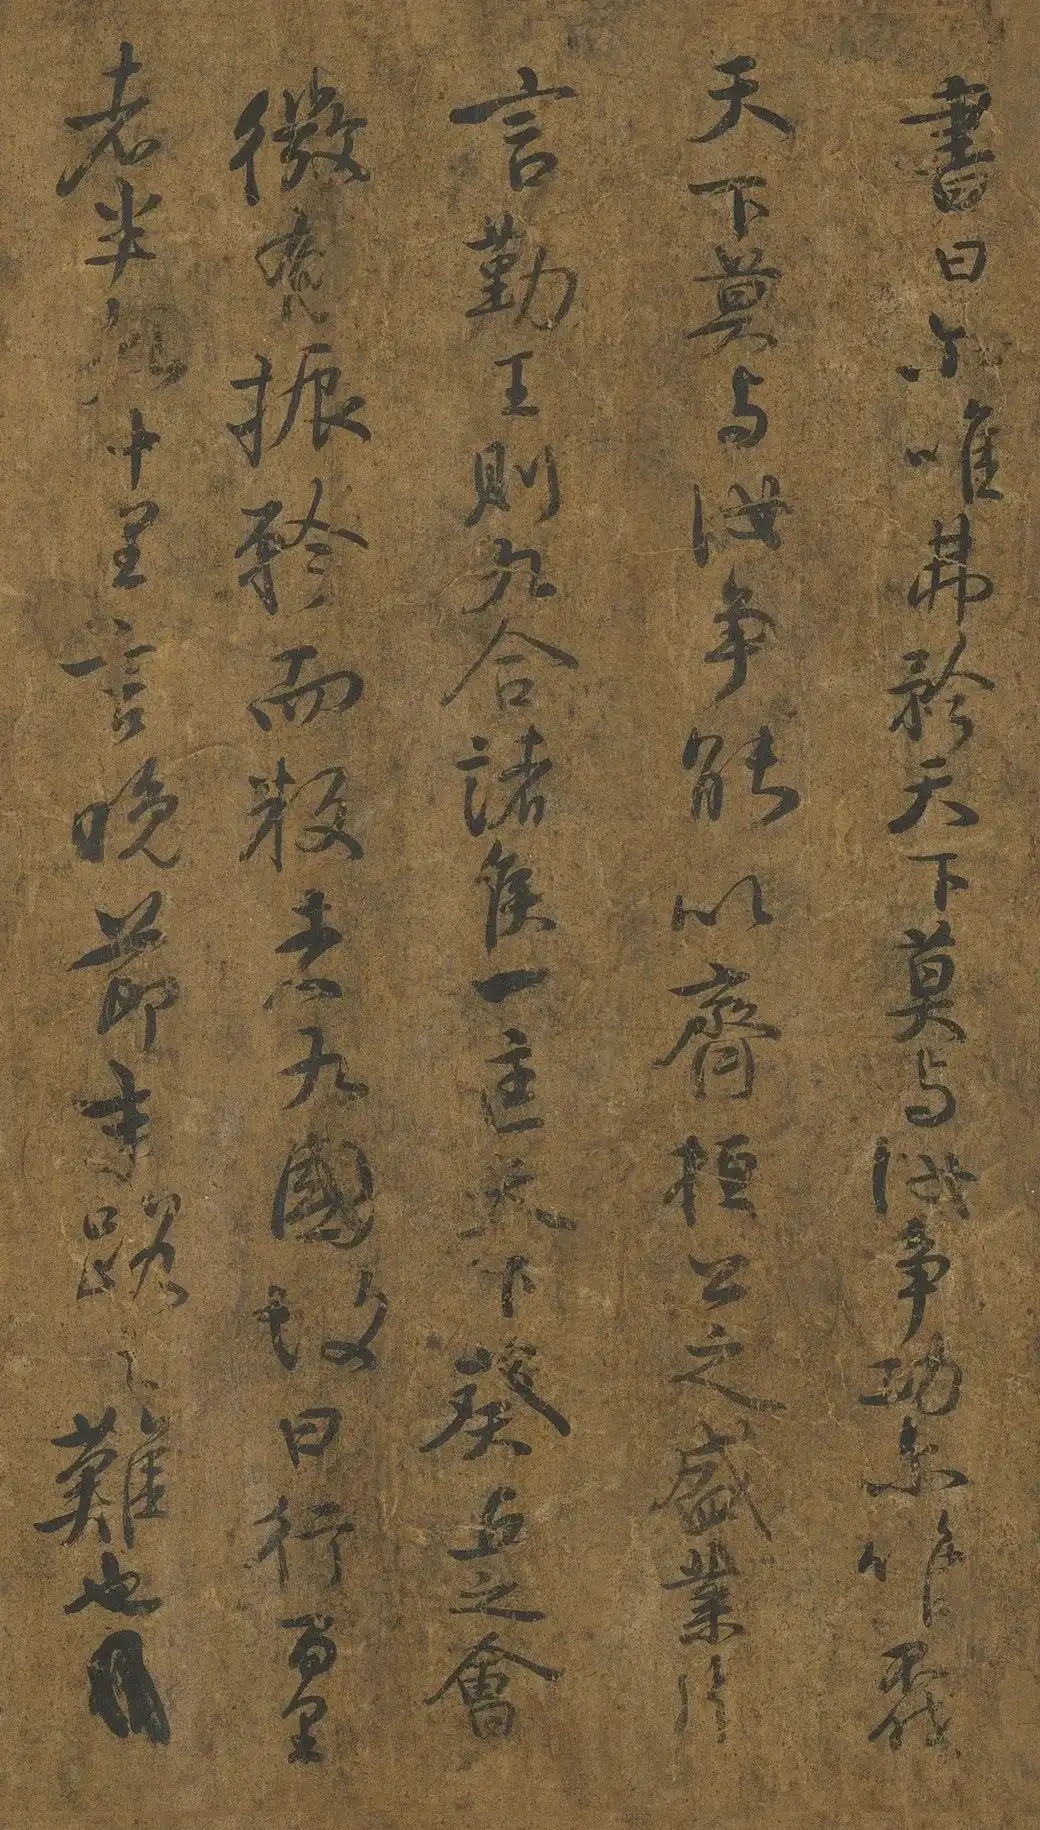 書曰尓唯弗矜天下莫与汝争功尓唯不伐
天下莫与汝争能以齊桓公之盛業片
言勤王則九合諸侯一匡天下葵丘之會
微有振矜而叛者九國故曰行百里
者半九十里言晚節末路之難也